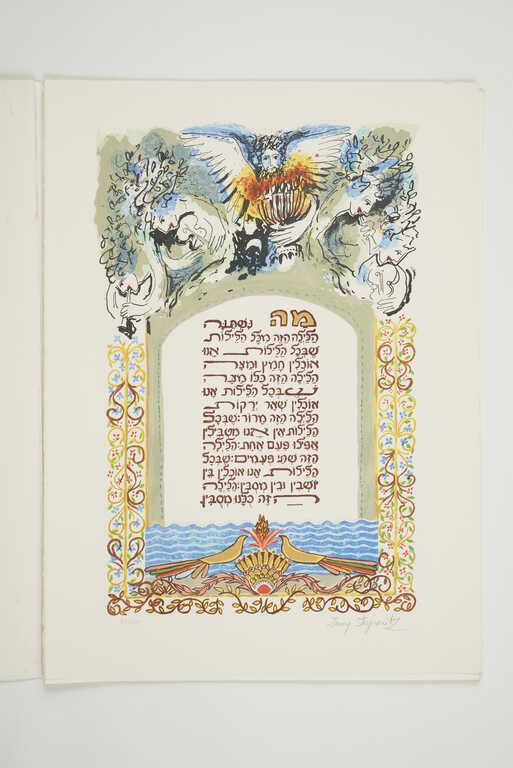 מה נשתנה
הלילה הזה מכל הלילות
שבכל הלילות אנו
אוכלין חמץ ומצה
הלילה הזה כלו מצה
שבכל הלילות אנו
אוכלין שאר ירקות
הלילה הזה מרור: שבכל
הלילות אין אנו מטבילין
אפילו פעם אחת: הלילה
הזה שתי פעמים: שבכל
הלילות אנו אוכלין בין
יושבין ובין מסבין: הלילה
הזה כלנו מסבין